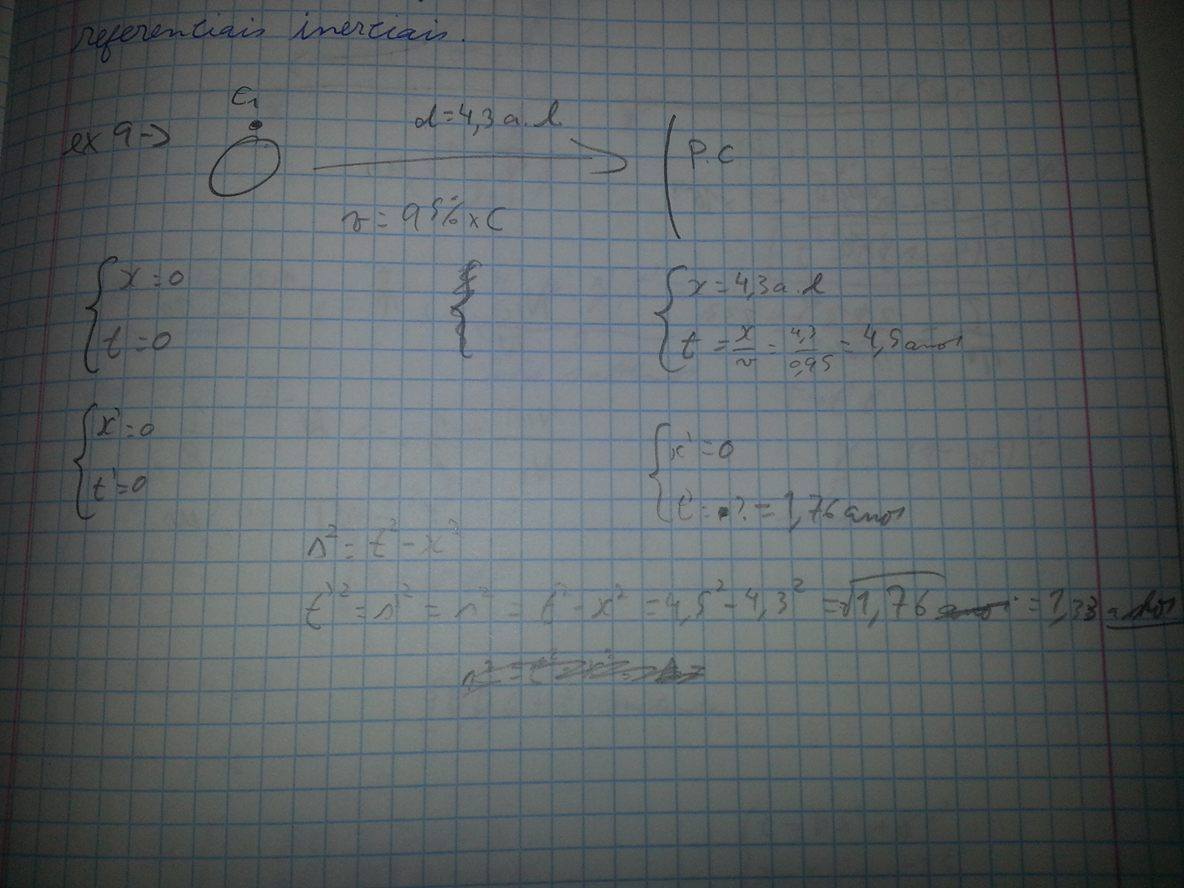 referenciais inerciais.
E1
d=4,3 a.l
ex 9->
P.C
v = 95% x C
{ x = 0
t = 0
{ x = 4,3 a.l
t = x/v = 4,3/0,95 = 4,5 anos
{ x' = 0
t' = 0
{ x' = 0
t' = ? = 1,76 anos
s² = t² - x²
t'² = s'² = s² = t² - x² = 4,5² - 4,3² = √1,76 = 1,33 anos